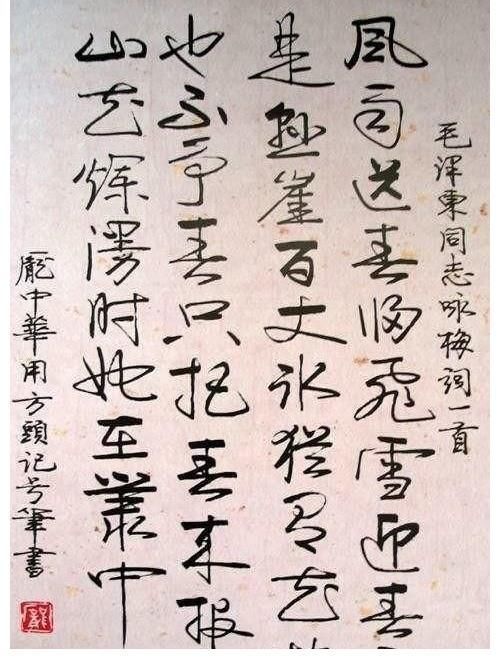 毛泽東同志咏梅词一首
風雨送春归飛雪迎春
是懸崖百丈冰猶有花
也不争春只把春来报
山花爛漫时她在叢中
龐中華用方頭记号筆書